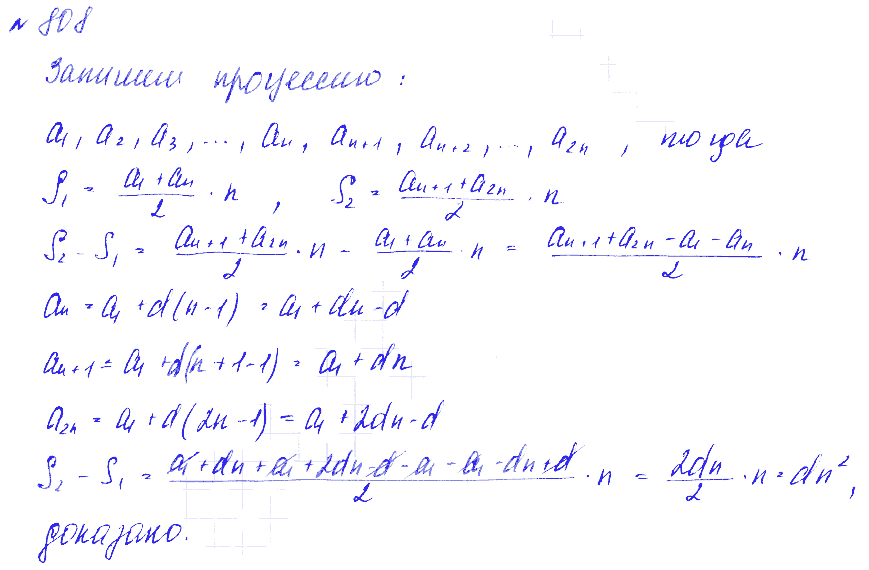 № 808
Запишем прогрессию:
a₁, a₂, a₃, ..., aₙ, aₙ₊₁, aₙ₊₂, ..., a₂ₙ, тогда
S₁ = (a₁ + aₙ)/2 · n, S₂ = (aₙ₊₁ + a₂ₙ)/2 · n
S₂ - S₁ = (aₙ₊₁ + a₂ₙ)/2 · n - (a₁ + aₙ)/2 · n = (aₙ₊₁ + a₂ₙ - a₁ - aₙ)/2 · n
aₙ = a₁ + d(n-1) = a₁ + dn - d
aₙ₊₁ = a₁ + d(n+1-1) = a₁ + dn
a₂ₙ = a₁ + d(2n-1) = a₁ + 2dn - d
S₂ - S₁ = (a₁ + dn + a₁ + 2dn - d - a₁ - a₁ - dn + d)/2 · n = 2dn/2 · n = dn²,
доказано.